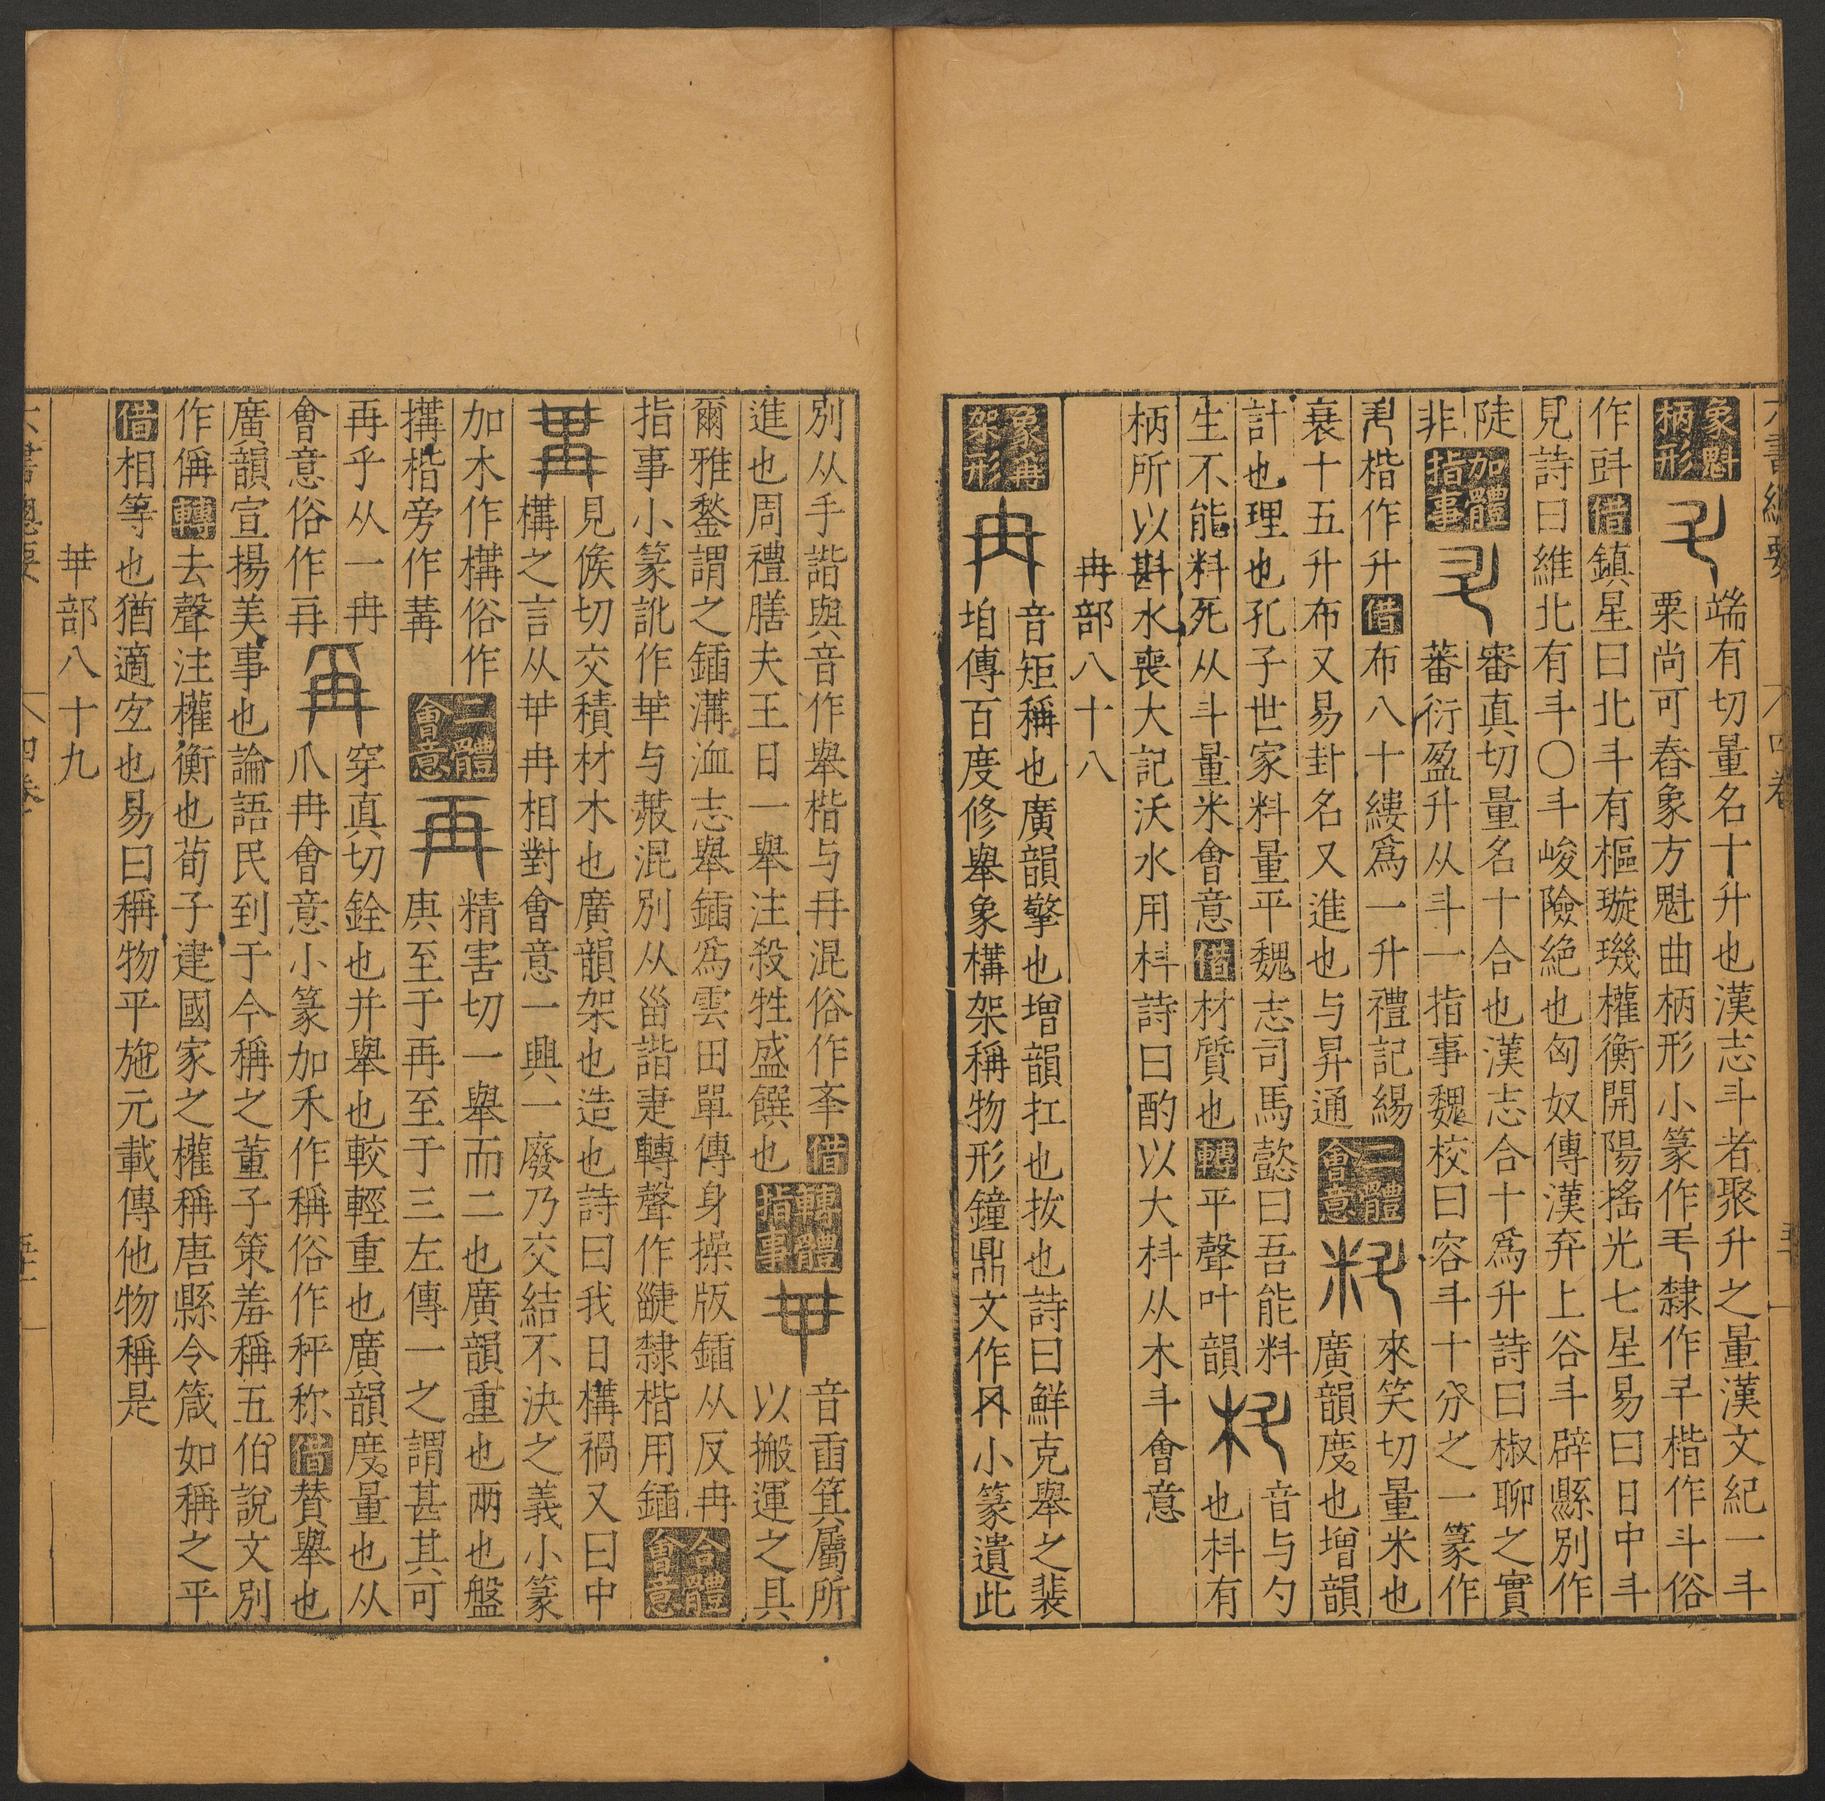 六書總要 四卷 五十一
象魁柄形 端有切量名十升也漢志斗者聚升之量漢文紀一斗
粟尚可舂象方魁曲柄形小篆作隸作楷作斗俗
作㪷借鎮星曰北斗有樞璇璣權衡開陽搖光七星易曰日中斗
見詩曰維北有斗〇斗峻險絶也匈奴傳漢弃上谷斗辟縣別作
陡非 加體指事 審真切量名十合也漢志合十爲升詩曰椒聊之實
蕃衍盈升从斗一指事魏校曰容斗十分之一篆作
楷作升借布八十縷爲一升禮記緆
衰十五升布又易封名又進也与昇通 二體會意 來笑切量米也
廣韻度也增韻
計也理也孔子世家料量平魏志司馬懿曰吾能料
生不能料死从斗量米會意借材質也轉平聲叶韻 音与勺
也枓有
柄所以斟水喪大記沃水用枓詩曰酌以大枓从木斗會意
冉部八十八
象冉架形 冉 音矩稱也廣韻擎也增韻扛也拔也詩曰鮮克舉之裴
垍傳百度修舉象構架稱物形鐘鼎文作小篆遺此
別从手諧與音作舉楷与冄混俗作㪯借音畐箕屬所
進也周禮膳夫王日一舉注殺牲盛饌也 轉體指事 以搬運之具
爾雅鍫謂之鍤溝洫志舉鍤爲雲田單傳身操版鍤从反冉
指事小篆訛作華与菽混別从甾諧疌轉聲作疀隸楷用鍤 合體會意
冓 見候切交積材木也廣韻架也造也詩曰我日構禍又曰中
構之言从冉相對會意一興一廢乃交結不決之義小篆
加木作構俗作
搆楷旁作冓 二體會意 再 精害切一舉而二也廣韻重也兩也盤
庚至于再至于三左傳一之謂甚其可
再乎从一冉
會意俗作再 爯 穿真切銓也并舉也較輕重也廣韻度量也从
爪冉會意小篆加禾作稱俗作秤称借賛舉也
廣韻宣揚美事也論語民到于今稱之董子策羞稱五伯說文別
作偁轉去聲注權衡也荀子建國家之權稱唐縣令箴如稱之平
借相等也猶適宜也易曰稱物平施元載傳他物稱是
華部八十九
六書總要 四卷 五十一